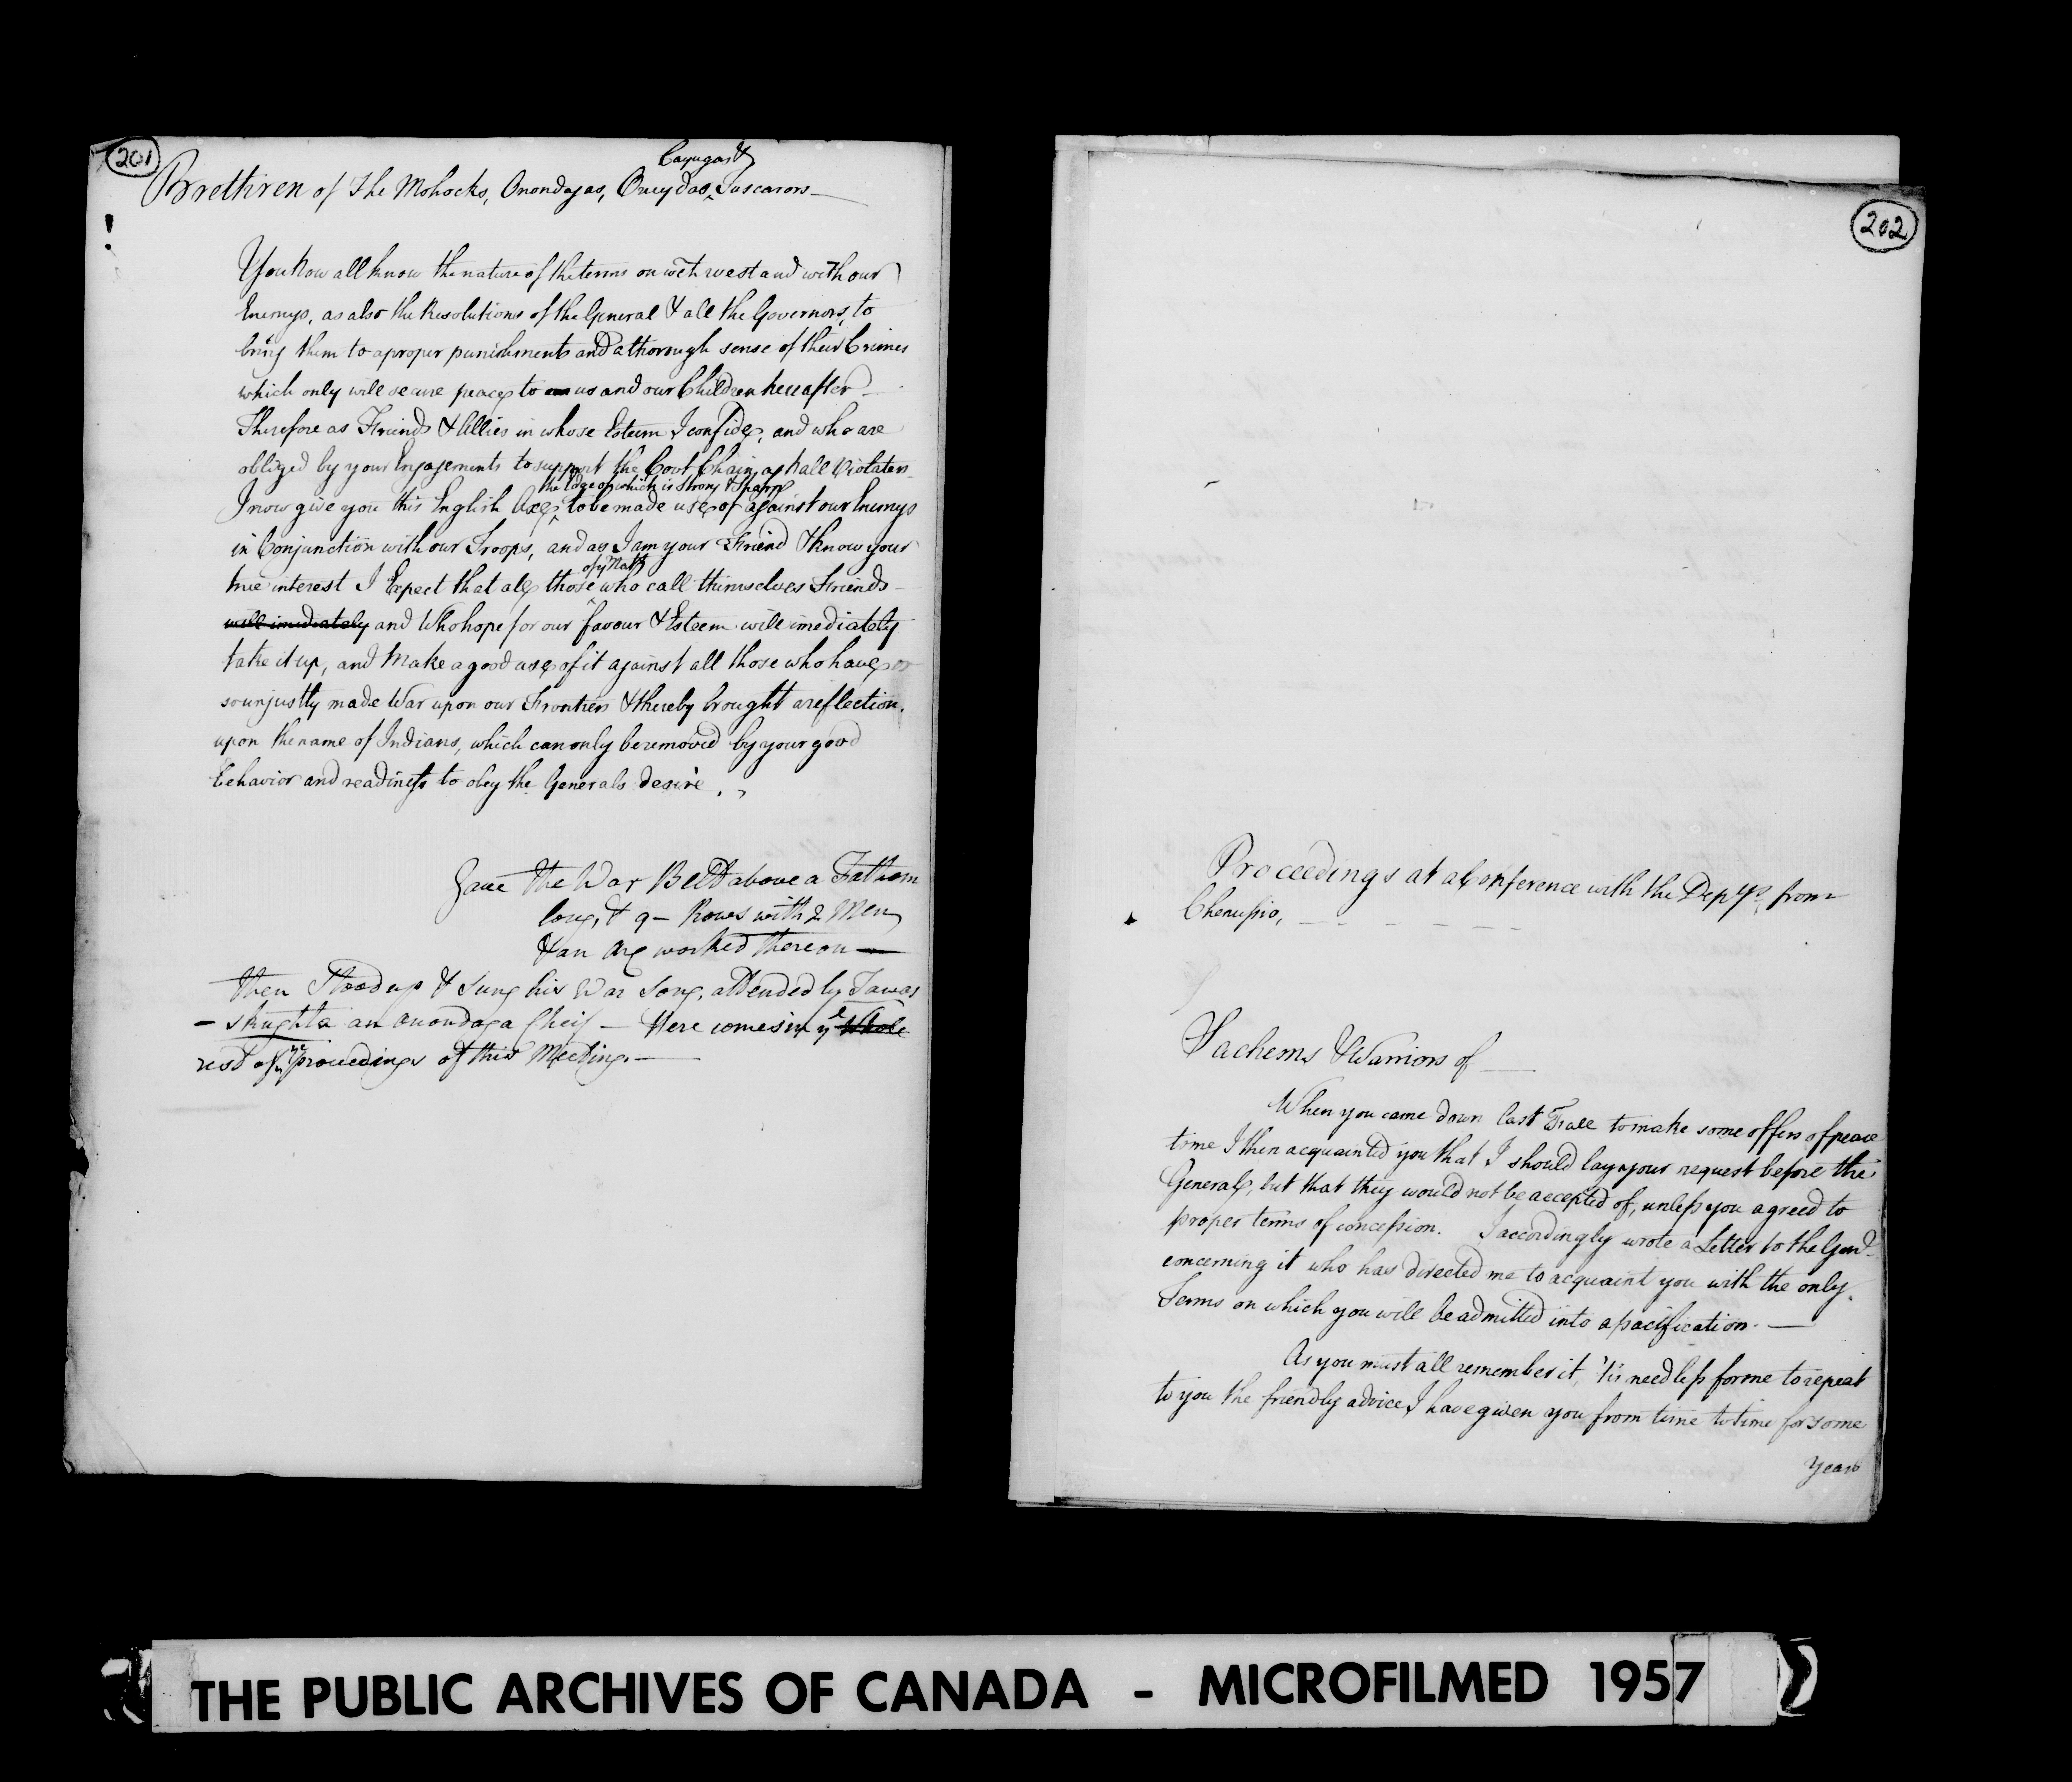 201
Cayugas &
Brethren of The Mohocks, Onondagas, Oneydas, ^ Tuscarors —
You now all know the nature of the terms on wch we stand with our
Enemys, as also the Resolutions of the General & all the Governors, to
bring them to a proper punishment and a thorough sense of their Crimes
which only will secure peace to us and our Children hereafter —
Therefore as Friends & Allies in whose Esteem I confide, and who are
obliged by your Engagements to support the Covt Chain, agst all Violaters
the Edge of which is Strong & Sharp
I now give you this English Axe, ^ to be made use of against our Enemys
in Conjunction with our Troops, and as I am your Friend & know your
of yr Nats
true interest I Expect that all those ^ who call themselves Friends
will imediately and Who hope for our favour & Esteem will imediately
take it up, and Make a good use of it against all those who have
so unjustly made War upon our Frontiers & thereby brought a reflection
upon the name of Indians, which can only be removed by your good
behavior and readiness to obey the Generals desire.
Gave the War Belt above a Fathom
long, & 9 — Rows with 2 Men
& an Axe worked thereon —
then Stood up & Sung his War Song, attended by Tawas
— shughta an Onondaga Cheif — Here comes in ye Whole
rest of ye proceedings of this Meeting. —
202
Proceedings at a Conference with the Deptys. from
Chenussio,
Sachems & Warriors of —
When you came down last Fall to make some offers of peace
time I then acquainted you that I should lay your request before the
General, but that they would not be accepted of, unless you agreed to
proper terms of concession. I accordingly wrote a Letter to the Genl
concerning it who has directed me to acquaint you with the only
Terms on which you will be admitted into a pacification. —
As you must all remember it, 'tis needless for me to repeat
to you the friendly advice I have given you from time to time for some
Years
THE PUBLIC ARCHIVES OF CANADA - MICROFILMED 1957